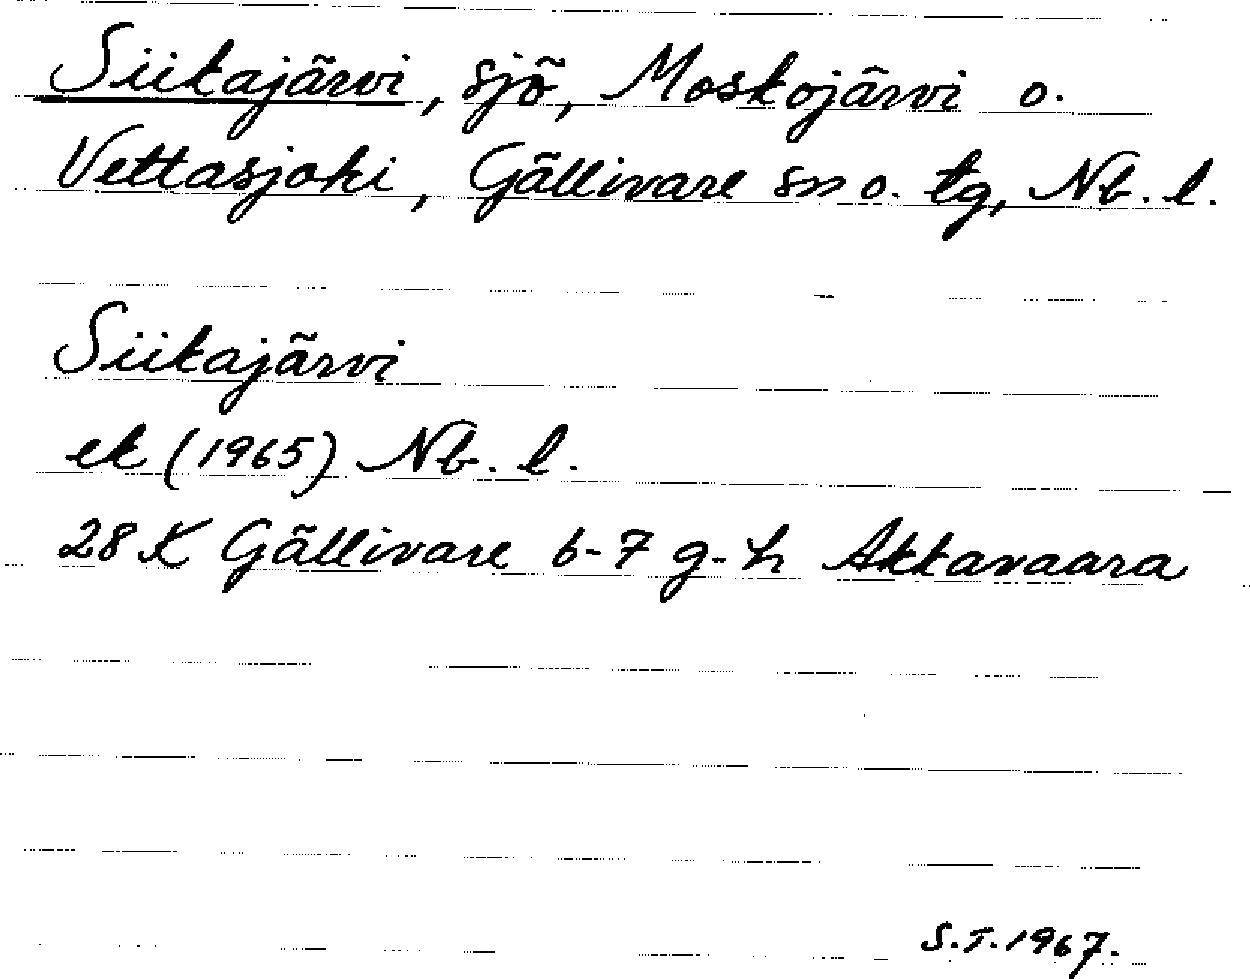 Siikajärvi, sjö, Moskojärvi o.
Vettasjoki, Gällivare sn o. tg, Nb. l.
Siikajärvi
ek (1965) Nb. l.
28 K Gällivare 6-7 g-h Akkavaara
S.T. 1967.